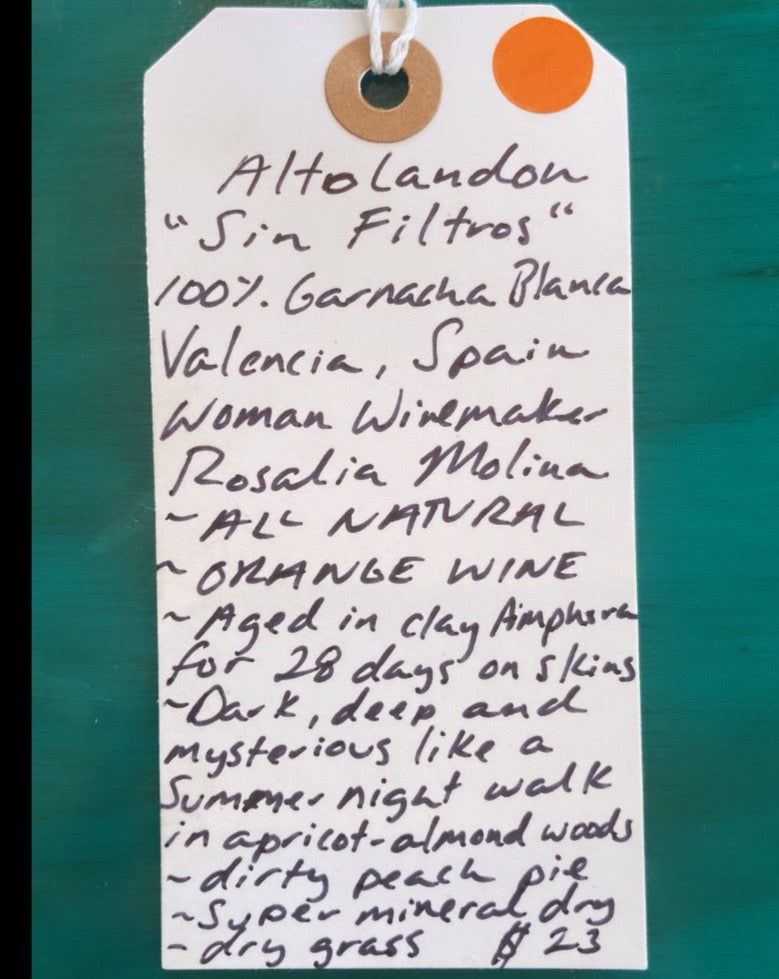 Altolandon
"Sin Filtros"
100%. Garnacha Blanca
Valencia, Spain
Woman Winemaker
Rosalia Molina
~ ALL NATURAL
~ ORANGE WINE
~ Aged in clay Amphora
for 28 days on skins
~Dark, deep and
mysterious like a
Summer night walk
in apricot-almond woods
~ dirty peach pie
~Super mineral, dry
- dry grass $ 23